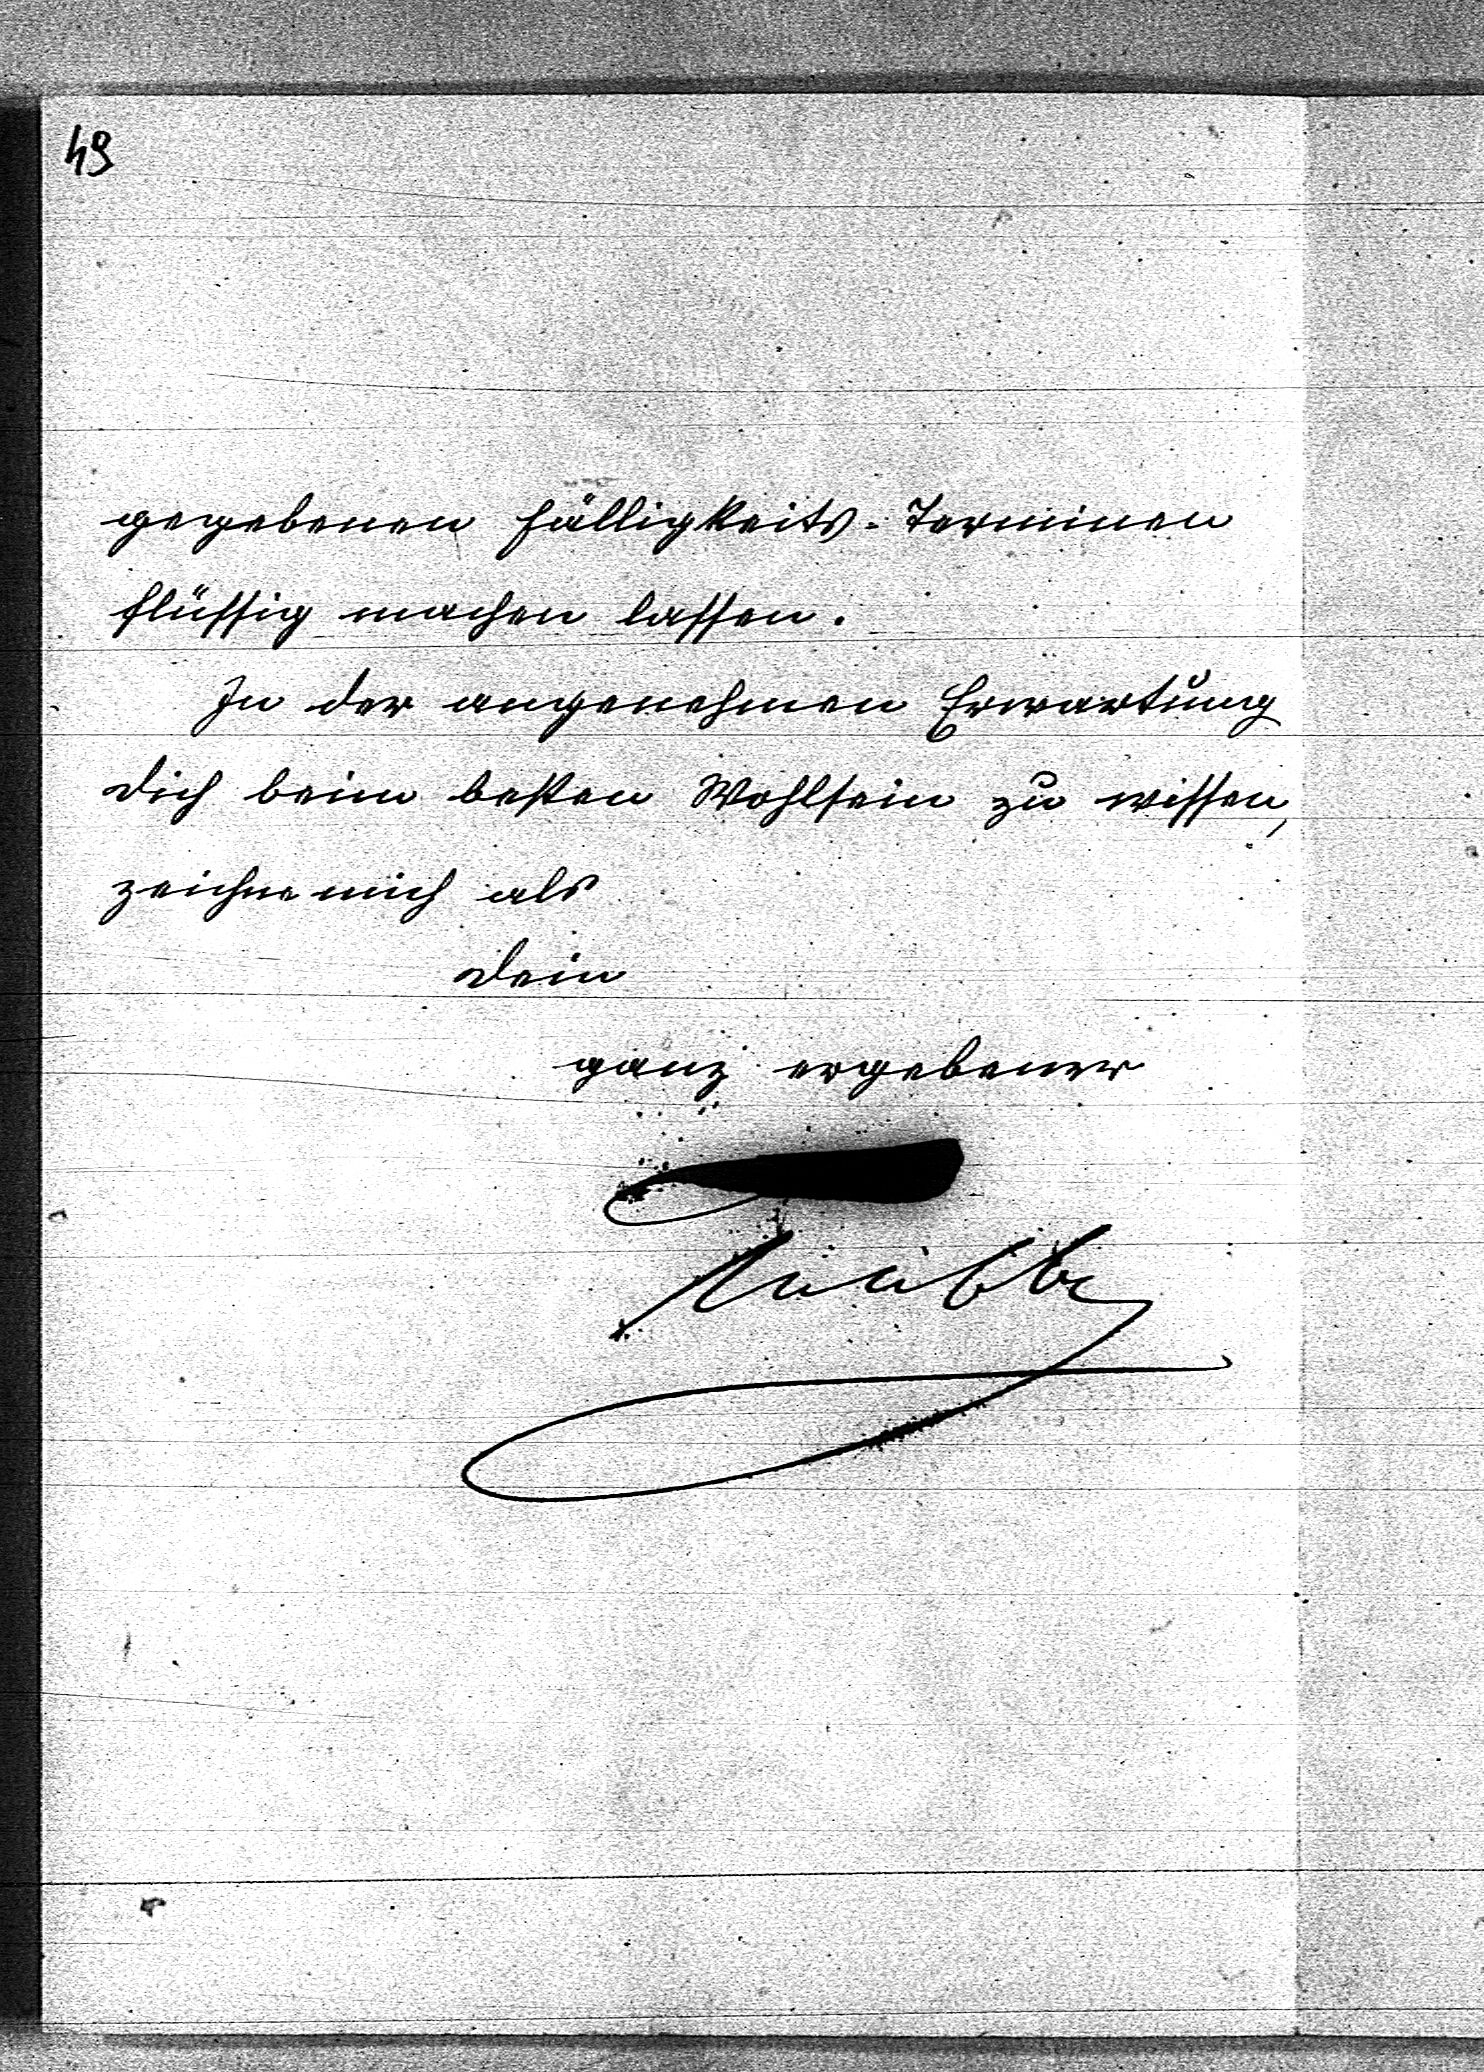 49
gegebenen Fälligkeits-Terminen
flüssig machen lassen.
In der angenehmen Erwartung
Dich beim besten Wohlsein zu wissen,
zeichne mich als
Dein
ganz ergebener